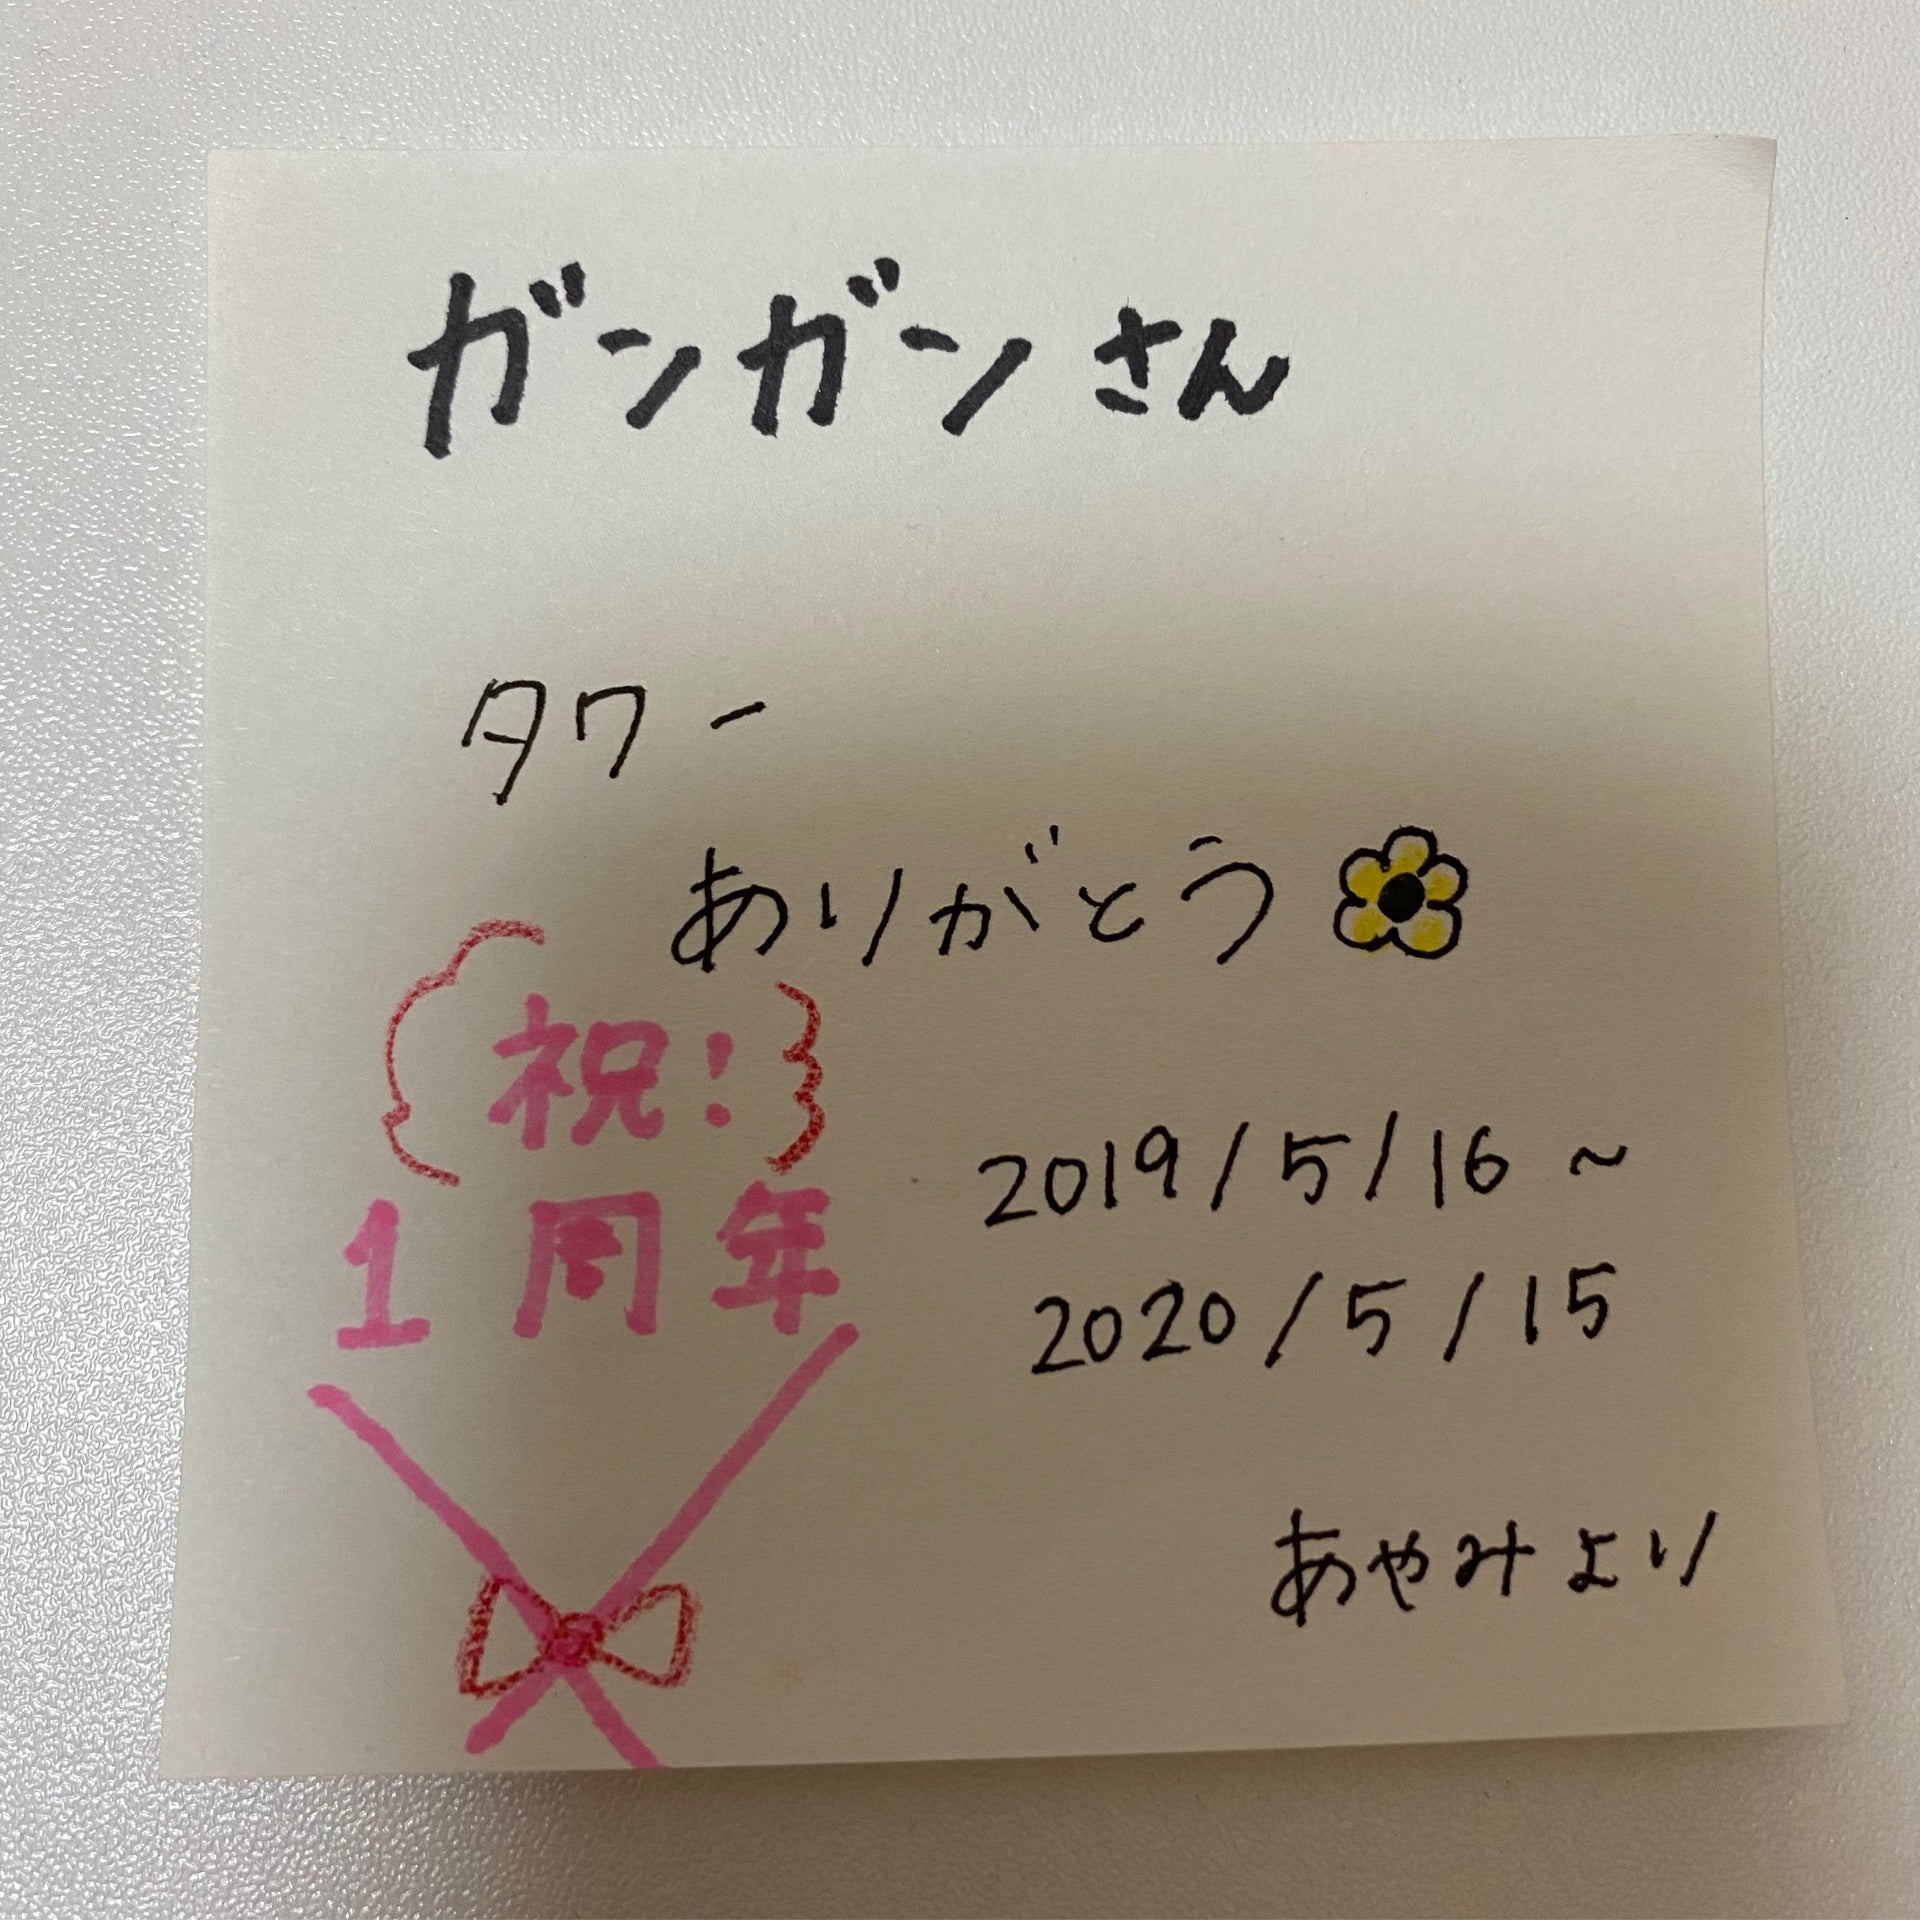 ガンガンさん
タワー
ありがとう
祝!
1周年
2019/5/16~
2020/5/15
あやみより